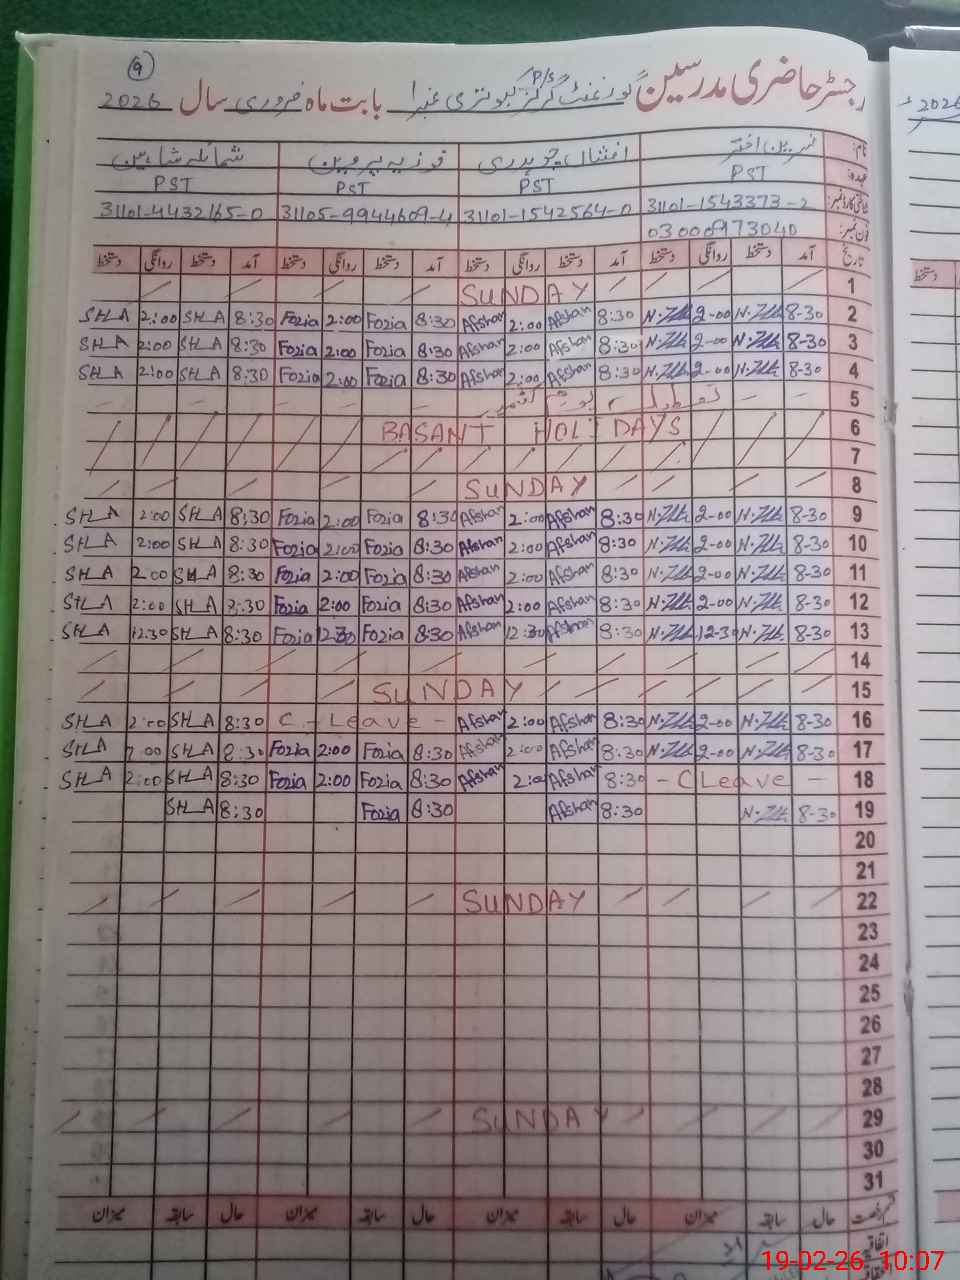 9
رجسٹر حاضری مدرسین گورنمنٹ گرلز P/S کبوتری نمبر 1 بابت ماہ فروری سال 2026
نام: نسرین اختر افشاں چوہدری فوزیہ پروین شمائلہ شاہین
عہدہ: PST PST PST PST
31101-1543373-2 31101-1542564-0 31105-9944609-4 31101-4432165-0
فون نمبر: 03000973040
تاریخ آمد دستخط روانگی دستخط آمد دستخط روانگی دستخط آمد دستخط روانگی دستخط آمد دستخط روانگی دستخط
SUNDAY 1
SH_A 2:00 SH_A 8:30 Fozia 2:00 Fozia 8:30 Afshan 2:00 Afshan 8:30 2-00 8-30 2
SH_A 2:00 SH_A 8:30 Fozia 2:00 Fozia 8:30 Afshan 2:00 Afshan 8:30 2-00 8-30 3
SH_A 2:00 SH_A 8:30 Fozia 2:00 Fozia 8:30 Afshan 2:00 Afshan 8:30 2-00 8-30 4
5
BASANT HOLIDAYS 6
7
SUNDAY 8
SH_A 2:00 SH_A 8:30 Fozia 2:00 Fozia 8:30 Afshan 2:00 Afshan 8:30 2-00 8-30 9
SH_A 2:00 SH_A 8:30 Fozia 2:00 Fozia 8:30 Afshan 2:00 Afshan 8:30 2-00 8-30 10
SH_A 2:00 SH_A 8:30 Fozia 2:00 Fozia 8:30 Afshan 2:00 Afshan 8:30 2-00 8-30 11
SH_A 2:00 SH_A 8:30 Fozia 2:00 Fozia 8:30 Afshan 2:00 Afshan 8:30 2-00 8-30 12
SH_A 12:30 SH_A 8:30 Fozia 12:30 Fozia 8:30 Afshan 12:30 Afshan 8:30 12-30 8-30 13
14
SUNDAY 15
SH_A 2:00 SH_A 8:30 C-Leave - Afshan 2:00 Afshan 8:30 2-00 8-30 16
SH_A 2:00 SH_A 8:30 Fozia 2:00 Fozia 8:30 Afshan 2:00 Afshan 8:30 2-00 8-30 17
SH_A 2:00 SH_A 8:30 Fozia 2:00 Fozia 8:30 Afshan 2:00 Afshan 8:30 - C Leave - 18
SH_A 8:30 Fozia 8:30 Afshan 8:30 8-30 19
20
21
SUNDAY 22
23
24
25
26
27
28
SUNDAY 29
30
31
حال سابقہ میزان حال سابقہ میزان حال سابقہ میزان حال سابقہ میزان
اتفاقیہ
2026
دستخط
19-02-26 10:07